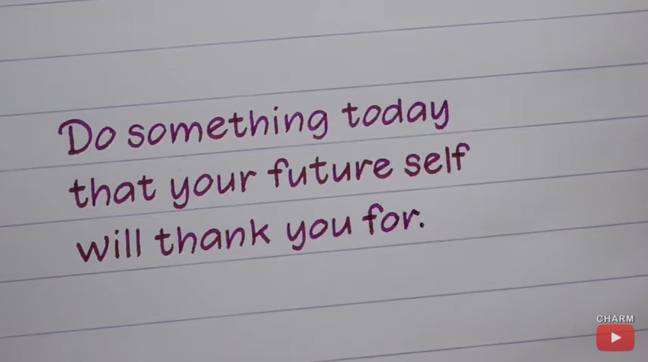 Do something today
that your future self
will thank you for.
CHARM